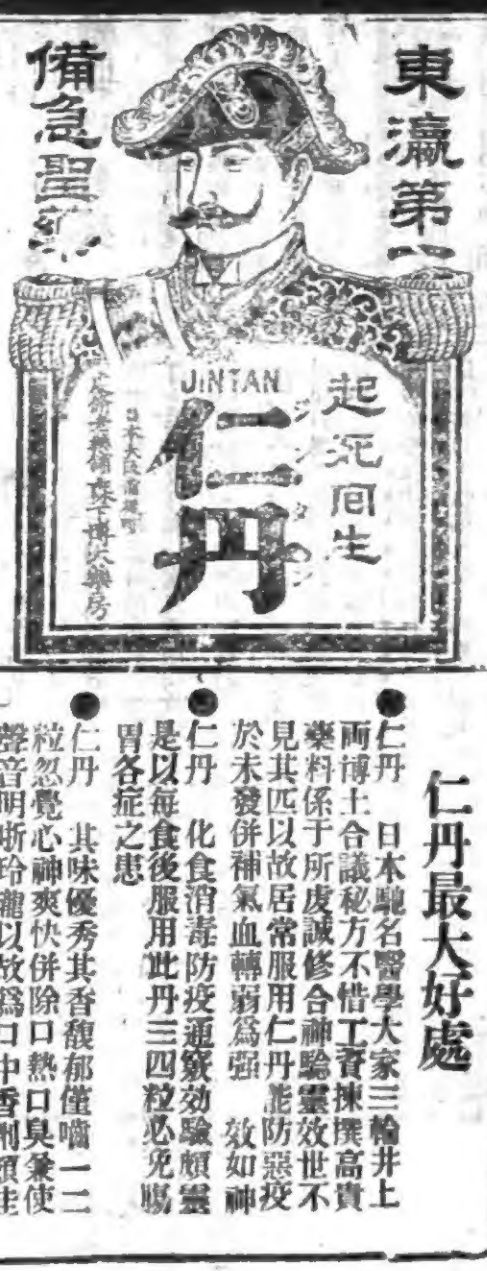 東瀛第一
備急聖藥
起死回生
JINTAN
仁丹
ジンタン
日本大阪
森下博大藥房
仁丹最大好處
●仁丹　日本馳名醫學大家三輪井上
両博士合議秘方不惜工資揀撰高貴
藥料係于所虔誠修合神驗靈效世不
見其匹以故居常服用仁丹能防惡疫
於未發併補氣血轉弱爲强　效如神
●仁丹　化食消毒防疫通竅効驗頗靈
是以每食後服用此丹三四粒必免腸
胃各症之患
●仁丹　其味優秀其香馥郁僅嚙一二
粒忽覺心神爽快併除口熱口臭兼使
聲音明晰玲瓏以故爲口中香劑頗佳